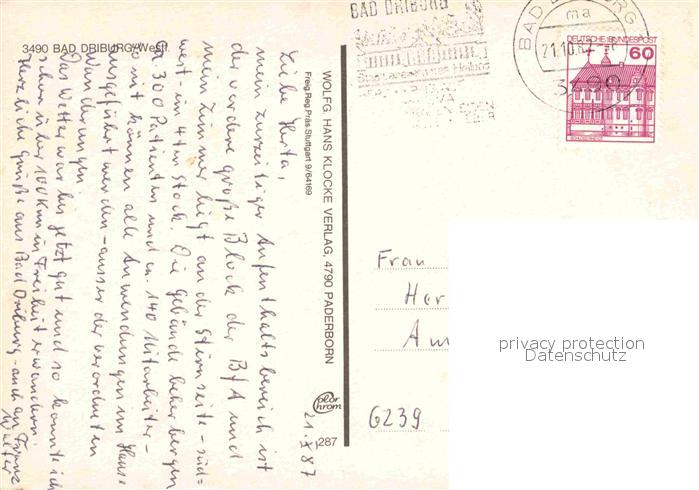 3490 BAD DRIBURG/Westf.
21.X.87
Liebe Herta,
mein zurzeitiger Aufenthaltsbereich ist
der vordere große Block der BfA und
mein Zimmer liegt an der Stirnseite - süd=
west - im 4ten Stock. Die Gebäude beherbergen
ca 300 Patienten und ca. 140 Mitarbeiter -
somit können alle Anwendungen im Hause
ausgeführt werden - ausser der verordneten
Wanderungen.
Das Wetter war bis jetzt gut und so konnte ich
schon über 100 Km in Freiheit erwandern.
Herzliche Grüße aus Bad Driburg - auch an Franz
Walter
WOLFG. HANS KLOCKE VERLAG, 4790 PADERBORN
Freig. Reg Präs Stuttgart 9/64169
Color chrom
287
BAD DRIBURG
BAD DRIBURG
ma
21.10.8
3490
DEUTSCHE BUNDESPOST
60
Frau
Her
Am
6239
privacy protection
Datenschutz